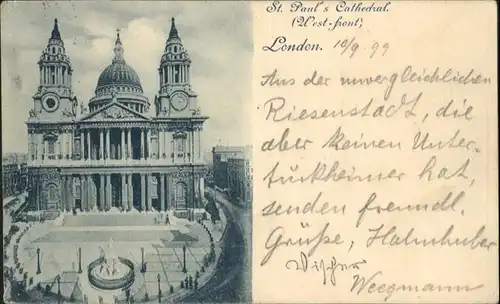 St. Paul's Cathedral.
(West-front)
London. 10/9. 99
Aus der unvergleichlichen
Riesenstadt, die
aber keinen Unter-
türkheimer hat,
senden freundl.
Grüße, Halmhuber
Wischer
Weegmann